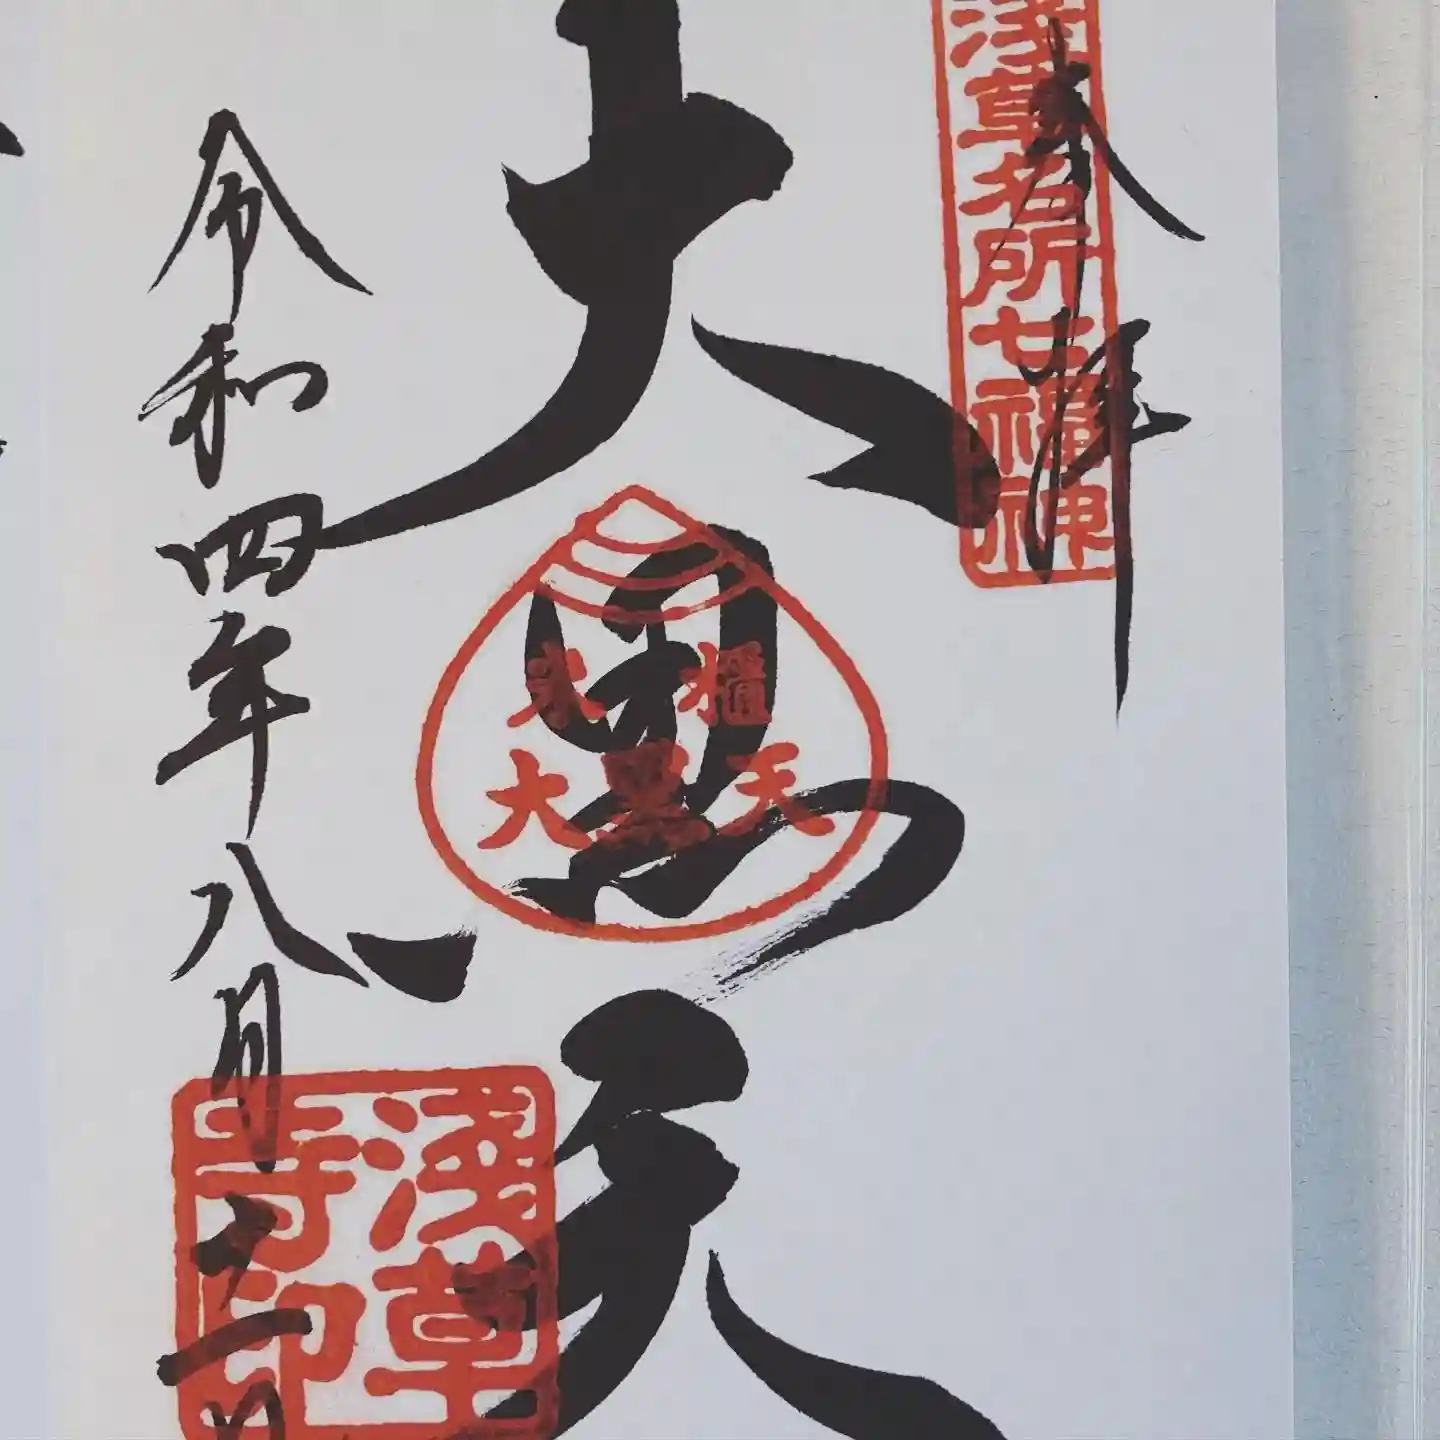 奉拝
浅草名所七福神
大黒天
米櫃
大黒天
令和四年八月二日
淺草
寺印